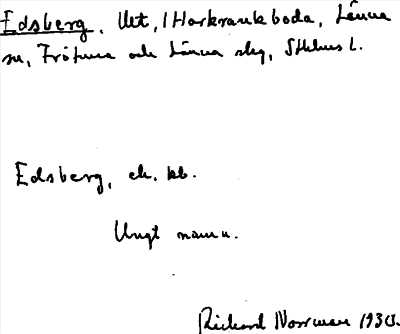 Edsberg, Utt, i Harkrankboda, Länna
sn, Frötuna och Länna skg, Sthlms l.
Edsberg, ek. kb.
Ungt namn.
Rickard Norrman 1930.